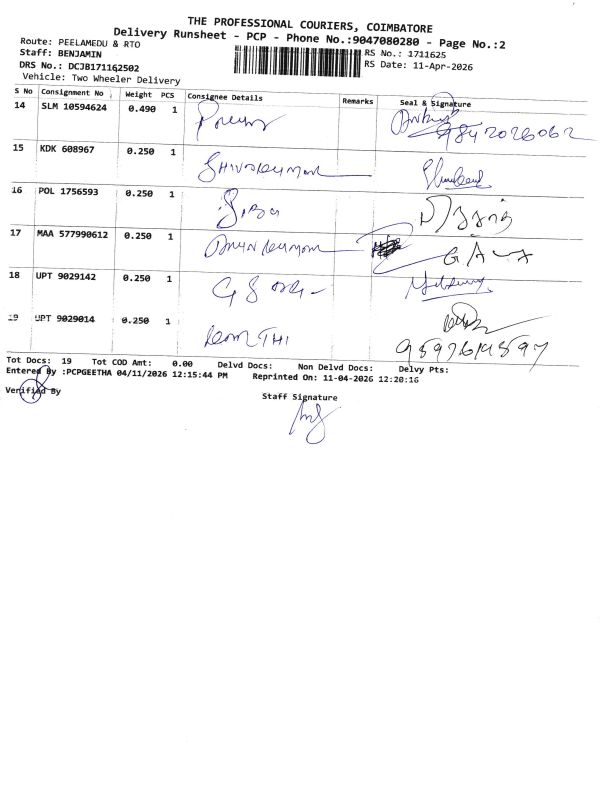 THE PROFESSIONAL COURIERS, COIMBATORE
Delivery Runsheet - PCP - Phone No.:9047080280 - Page No.:2
Route: PEELAMEDU & RTO
Staff: BENJAMIN
RS No.: 1711625
DRS No.: DCJB171162502
RS Date: 11-Apr-2026
Vehicle: Two Wheeler Delivery
S No Consignment No Weight PCS Consignee Details Remarks Seal & Signature
14 SLM 10594624 0.490 1
15 KDK 608967 0.250 1 SHIVAKUMAR
16 POL 1756593 0.250 1
17 MAA 577990612 0.250 1
18 UPT 9029142 0.250 1
19 UPT 9029014 0.250 1
Tot Docs: 19 Tot COD Amt: 0.00 Delvd Docs: Non Delvd Docs: Delvy Pts:
Entered By :PCPGEETHA 04/11/2026 12:15:44 PM Reprinted On: 11-04-2026 12:20:16
Verified By
Staff Signature